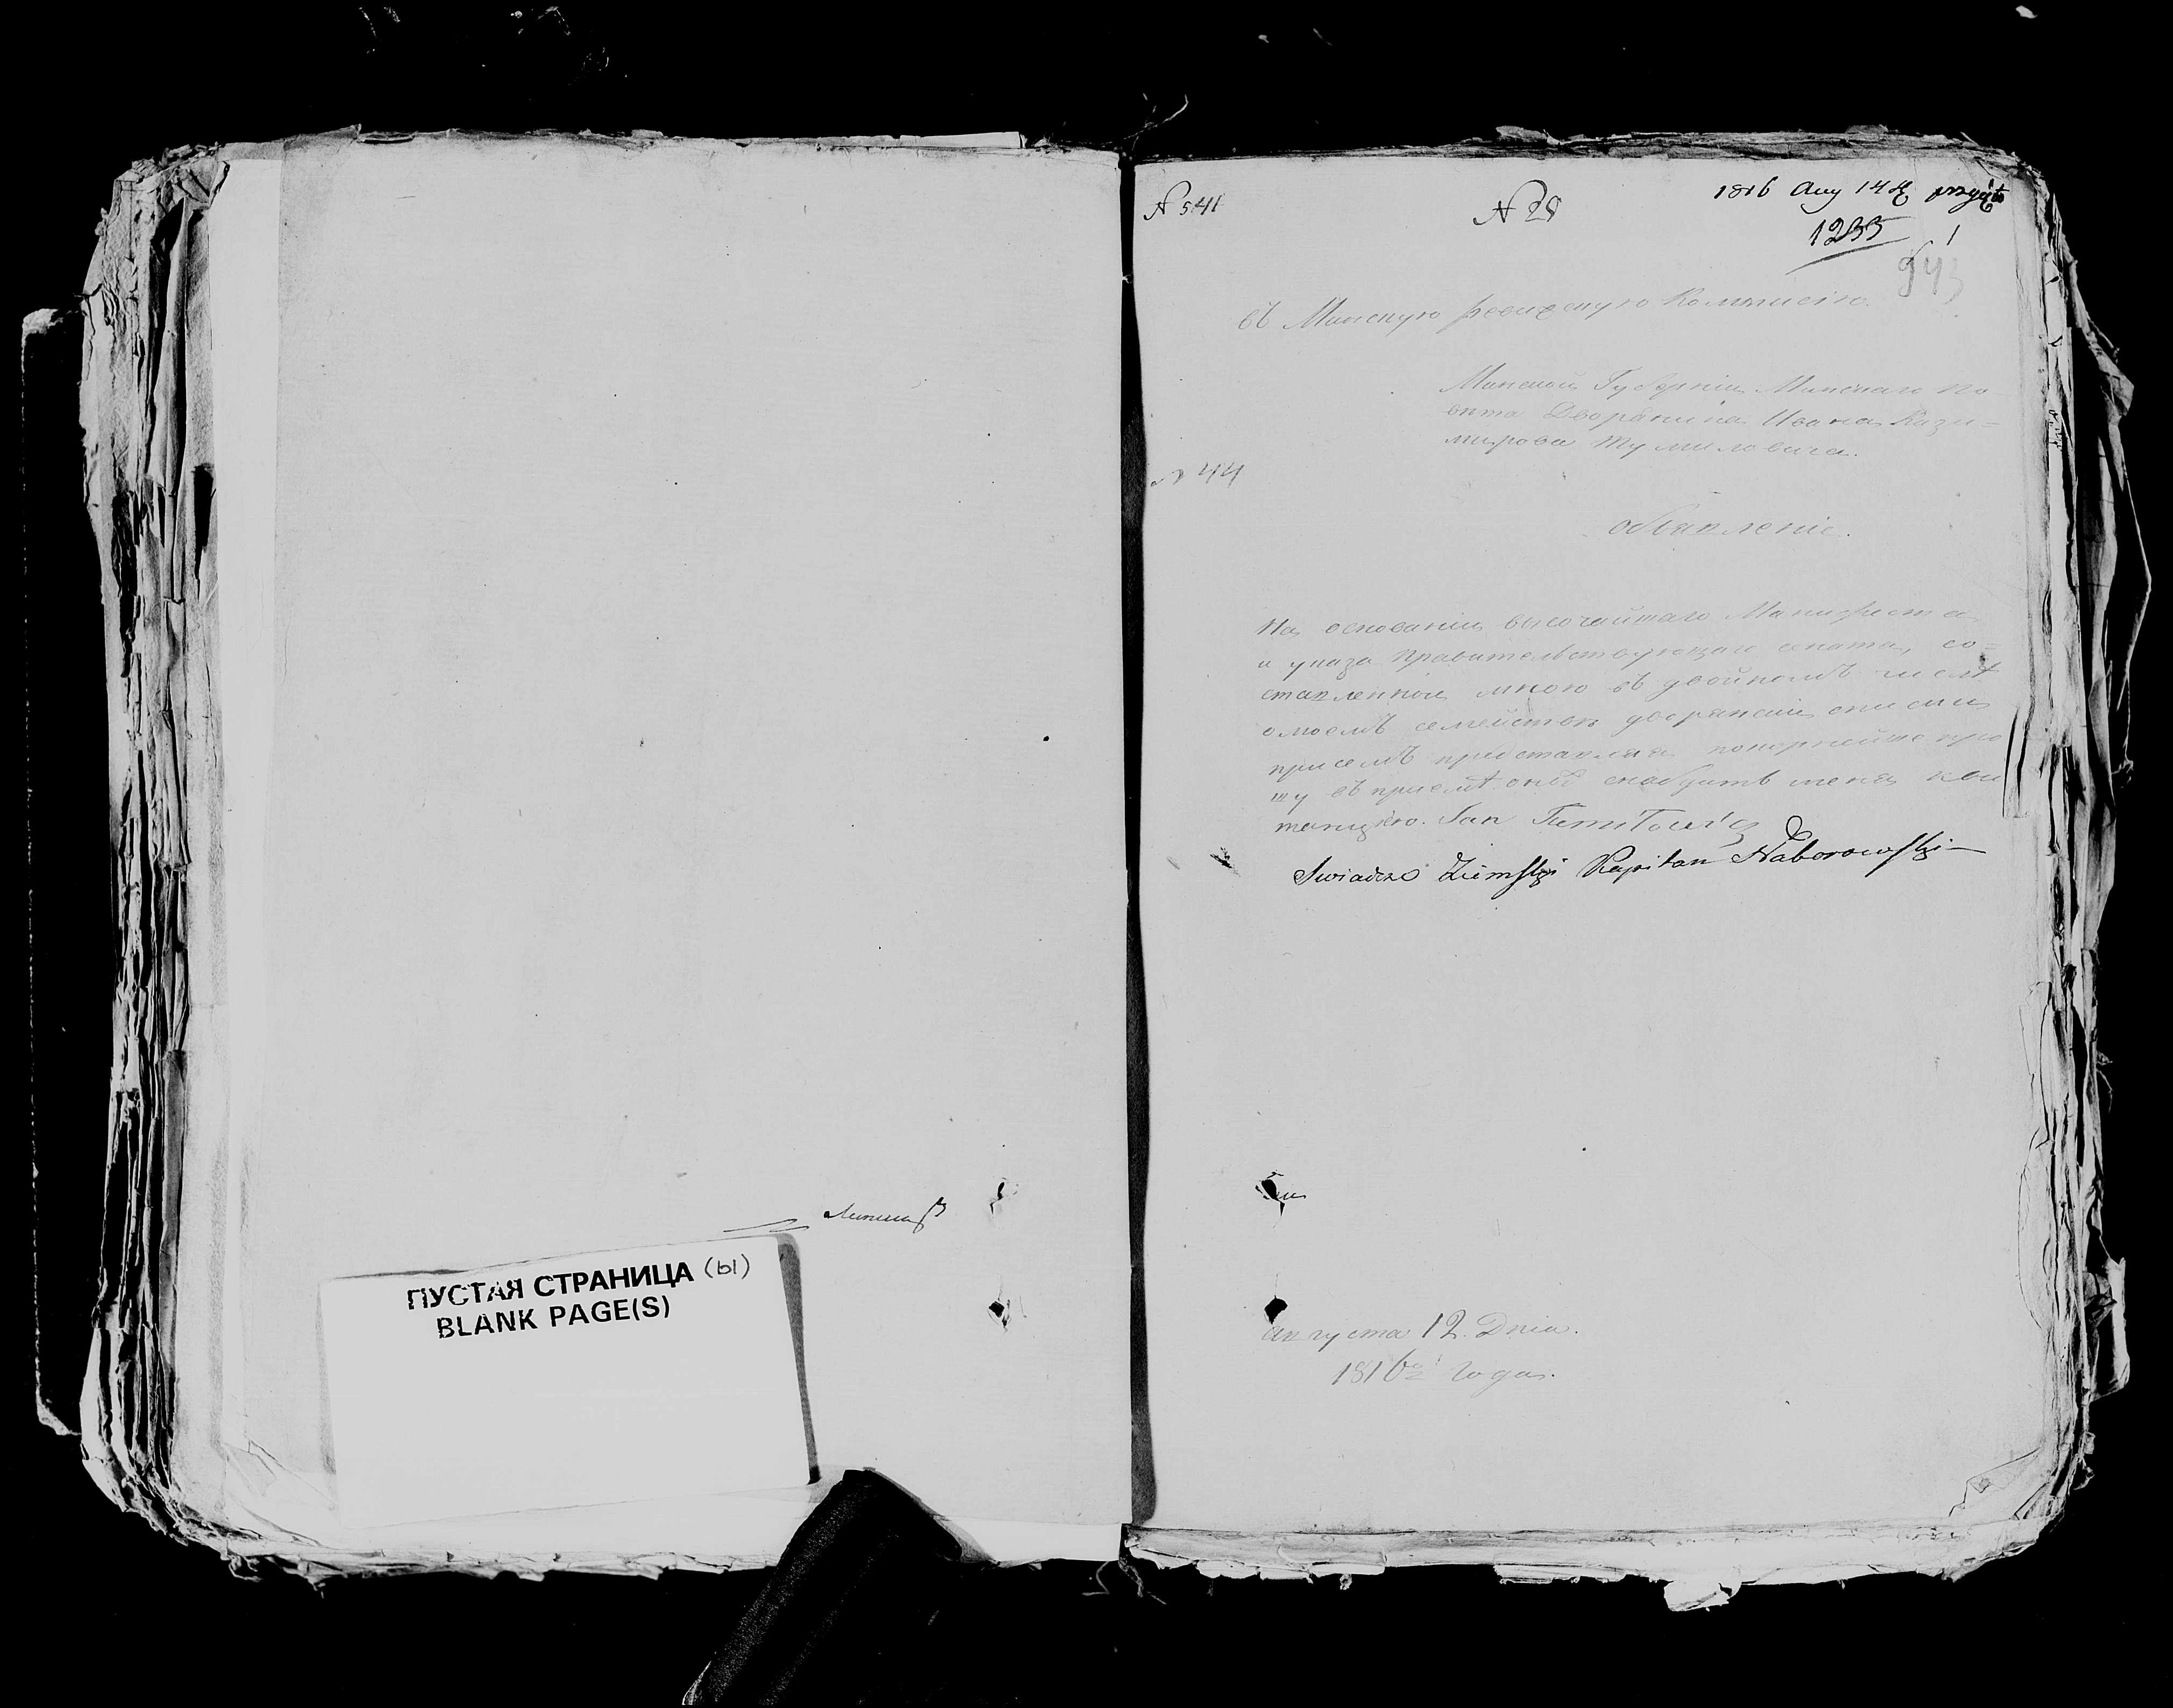 ПУСТАЯ СТРАНИЦА (Ы)
BLANK PAGE(S)
№ 541
№ 28
1816 Aug 14 д przyięto
1233
1
943
Въ Минскую ревизскую Коммисію.
Минской Губерніи Минскаго По-
вѣта Дворянина Ивана Кази=
мирова Тумиловича.
№ 44
Объявленіе.
На основаніи высочайшаго Манифеста
и указа Правительствующаго сената, со=
ставленной мною въ двойномъ числѣ
о моемъ семействѣ дворянскіи списки
при семъ представляя покорнейше про
шу въ приемѣ оныхъ снабдить меня кви
танціею. Jan Tumiłowicz
Swiadczo Ziemski Kapitan Naborowski
августа 12. Дня.
1816го года.